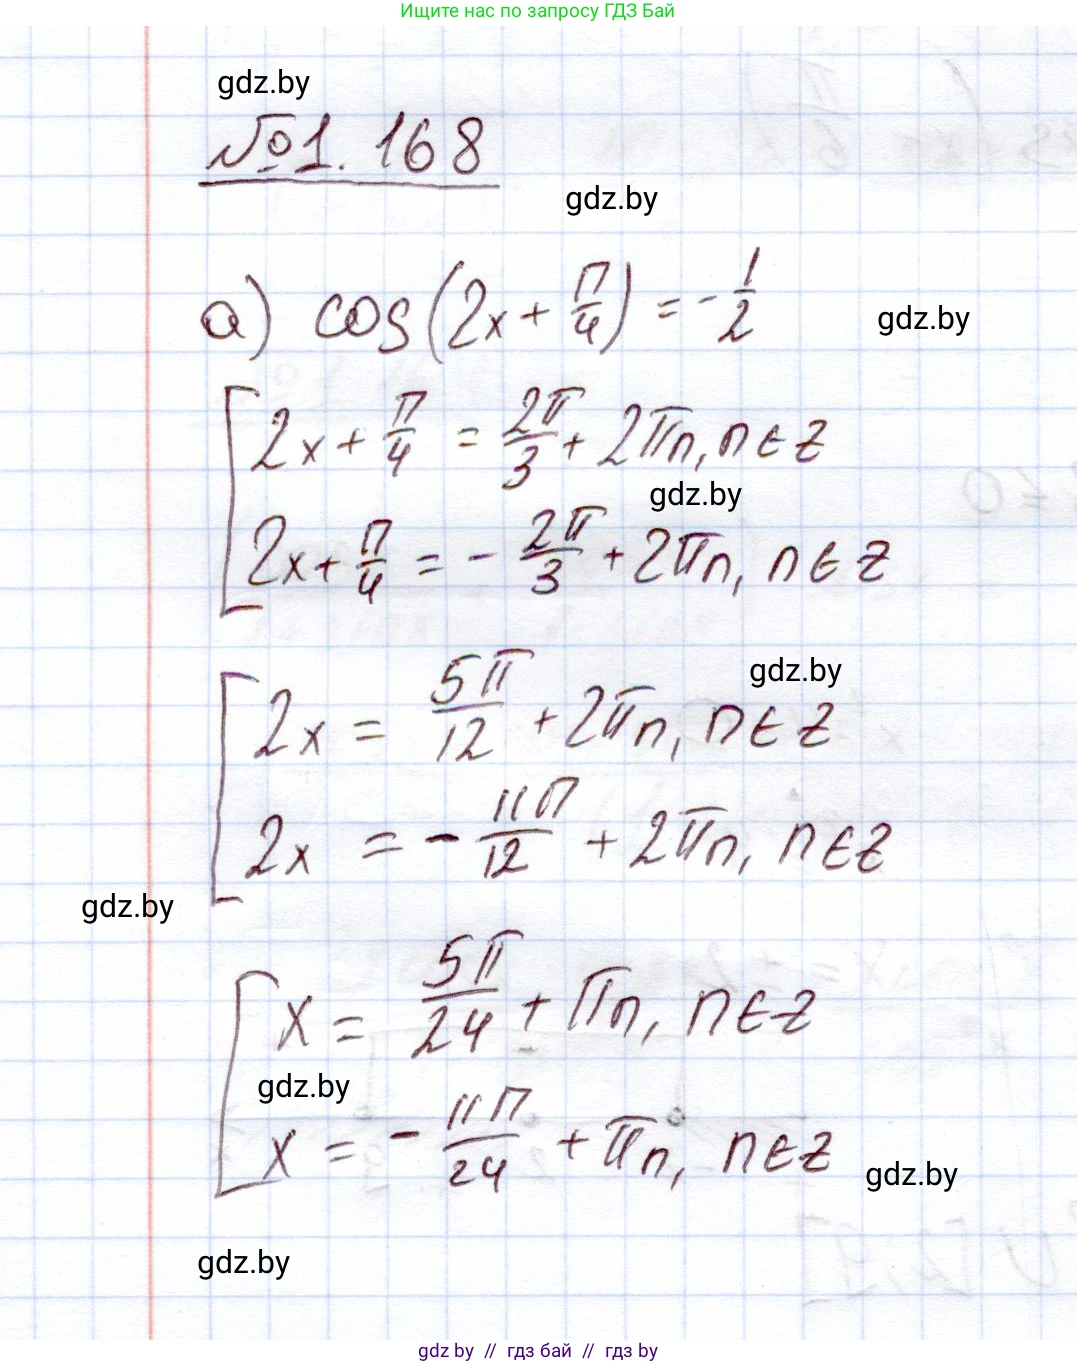 Ищите нас по запросу ГДЗ Бай
gdz.by
№1.168
gdz.by
а) cos(2x + π/4) = -1/2
gdz.by
[2x + π/4 = 2π/3 + 2πn, n∈Z
gdz.by
2x + π/4 = - 2π/3 + 2πn, n∈Z
gdz.by
[2x = 5π/12 + 2πn, n∈Z
2x = - 11π/12 + 2πn, n∈Z
gdz.by
[x = 5π/24 + πn, n∈Z
gdz.by
x = - 11π/24 + πn, n∈Z
gdz.by
gdz.by
gdz by // гдз бай // гдз by